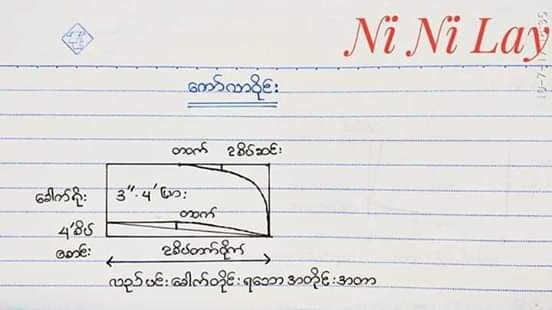 Ni Ni Lay
ကော်လာဝိုင်း
တဝက် ၁စိပ်ဆင်း
ခေါက်ရိုး
3"-4' ပြား
တဝက်
4'စိပ်
စောင်း
၁စိပ်တက်ဝိုက်
လည်ပင်းခေါက်တိုင်းရသောအတိုင်းအတာ